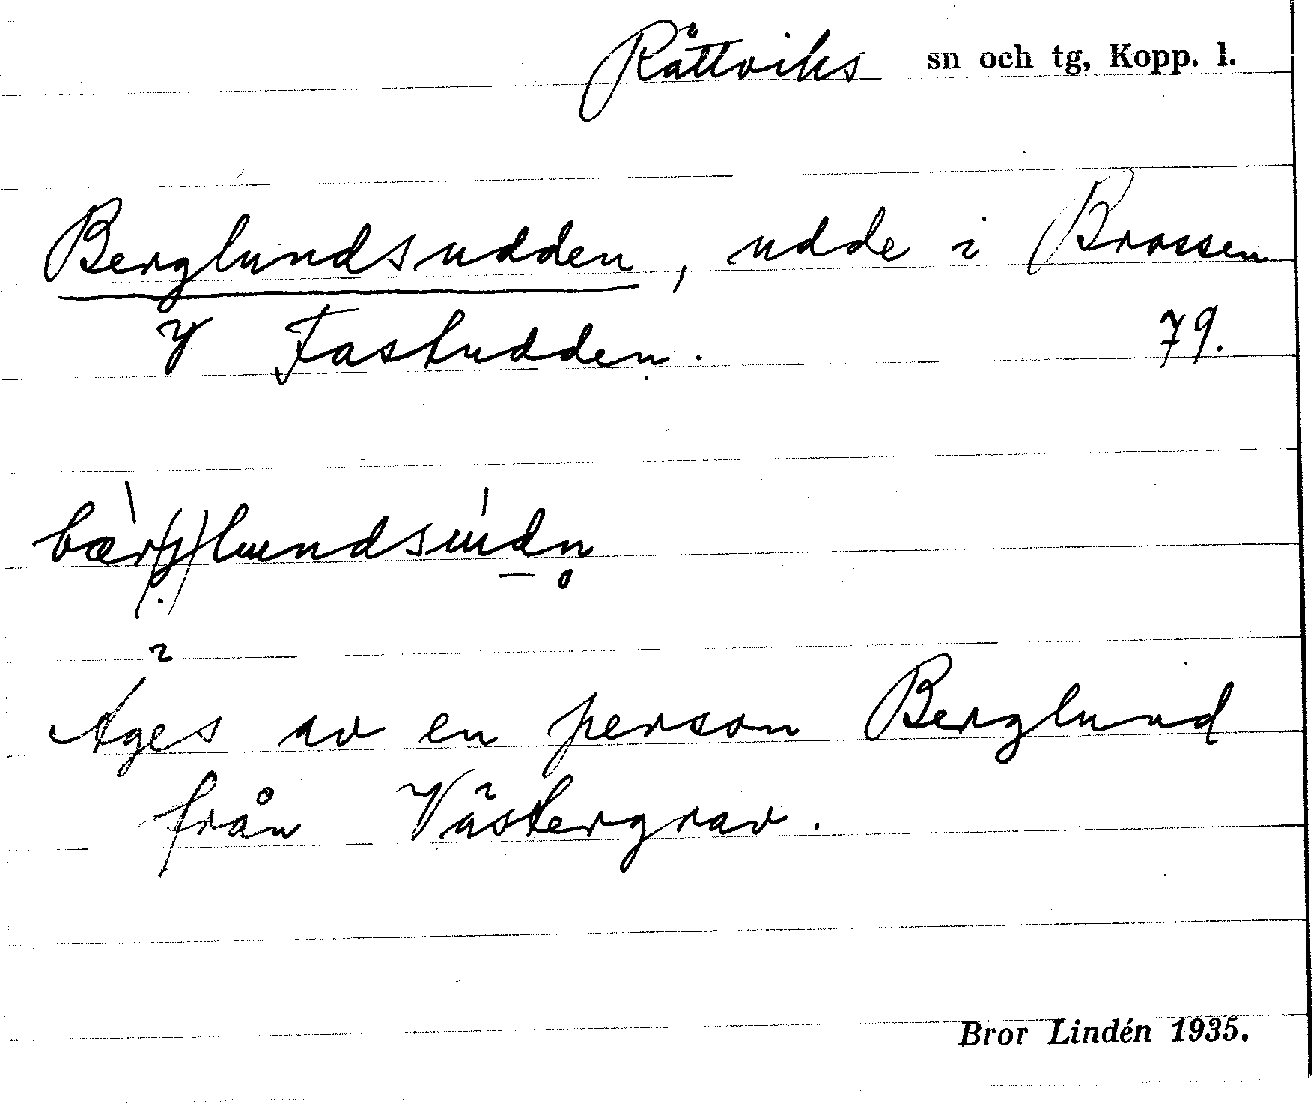 Rättviks sn och tg, Kopp. l.
Berglundsudden, udde i Brossen
V Fastudden. 79.
bær(j)lundsudn
Äges av en person Berglund
från Västergrav.
Bror Lindén 1935.